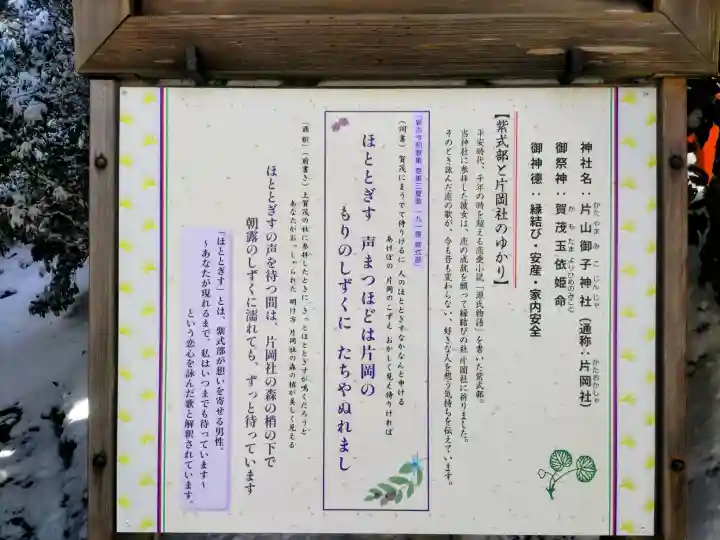 神社名：片山御子神社（通称：片岡社）
かたやまみこじんじゃ
かたおかしゃ
御祭神：賀茂玉依姫命
かもたまよりひめのみこと
御神徳：縁結び・安産・家内安全
【紫式部と片岡社のゆかり】
平安時代、千年の時を超える恋愛小説「源氏物語」を書いた紫式部。
当神社に参拝した彼女は、恋の成就を願って縁結びの社 片岡社に祈りました。
そのとき詠んだ恋の歌が、今も昔も変わらない、好きな人を想う気持ちを伝えています。
『新古今和歌集 巻第三夏歌 一九一番 紫式部』
（詞書）賀茂にまうでて侍りけるに 人のほととぎすなかなんと申ける
あけぼの 片岡のこずゑ おかしく見え侍りければ
ほととぎす 声まつほどは片岡の
もりのしずくに たちやぬれまし
（通釈）（前書き）上賀茂の社に参拝したときに、きっとほととぎすが鳴くだろうと
あなたがおっしゃられた 明け方 片岡社の森の梢が美しく見える
ほととぎすの声を待つ間は、片岡社の森の梢の下で
朝露のしずくに濡れても、ずっと待っています
「ほととぎす」とは、紫式部が想いを寄せる男性。
～あなたが現れるまで、私はいつまでも待っています～
という恋心を詠んだ歌と解釈されています。